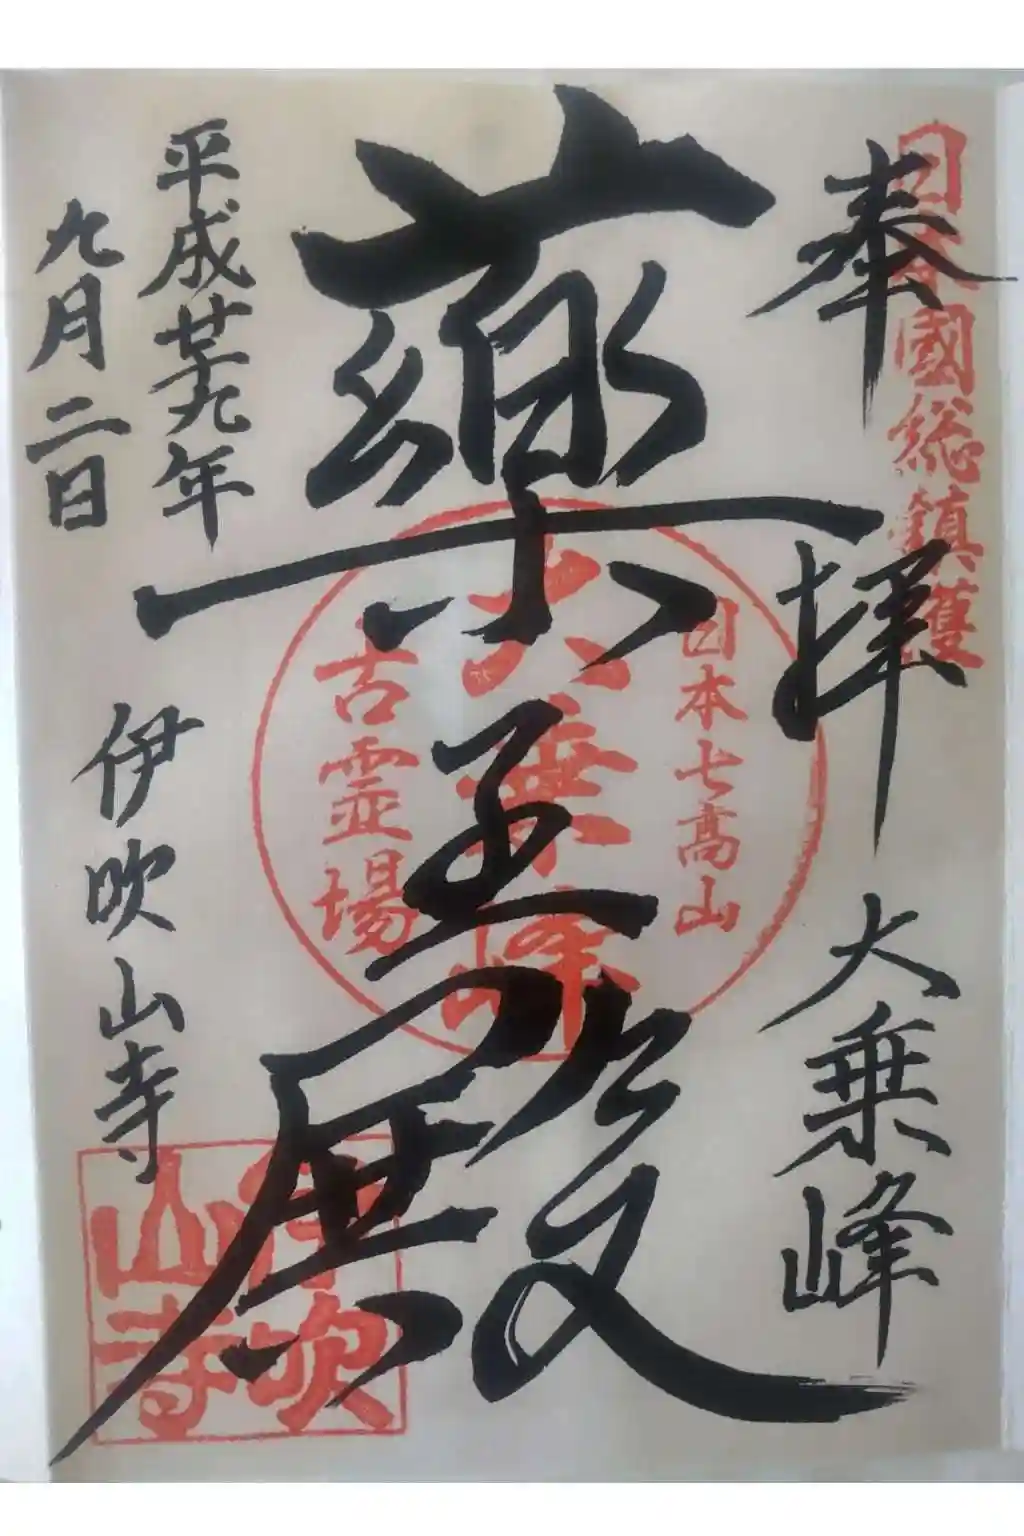 日本國総鎮護
奉拝
大乗峰
日本七高山
大乗峰
古霊場
薬王殿
平成廿九年
九月二日
伊吹山寺
伊吹
山寺